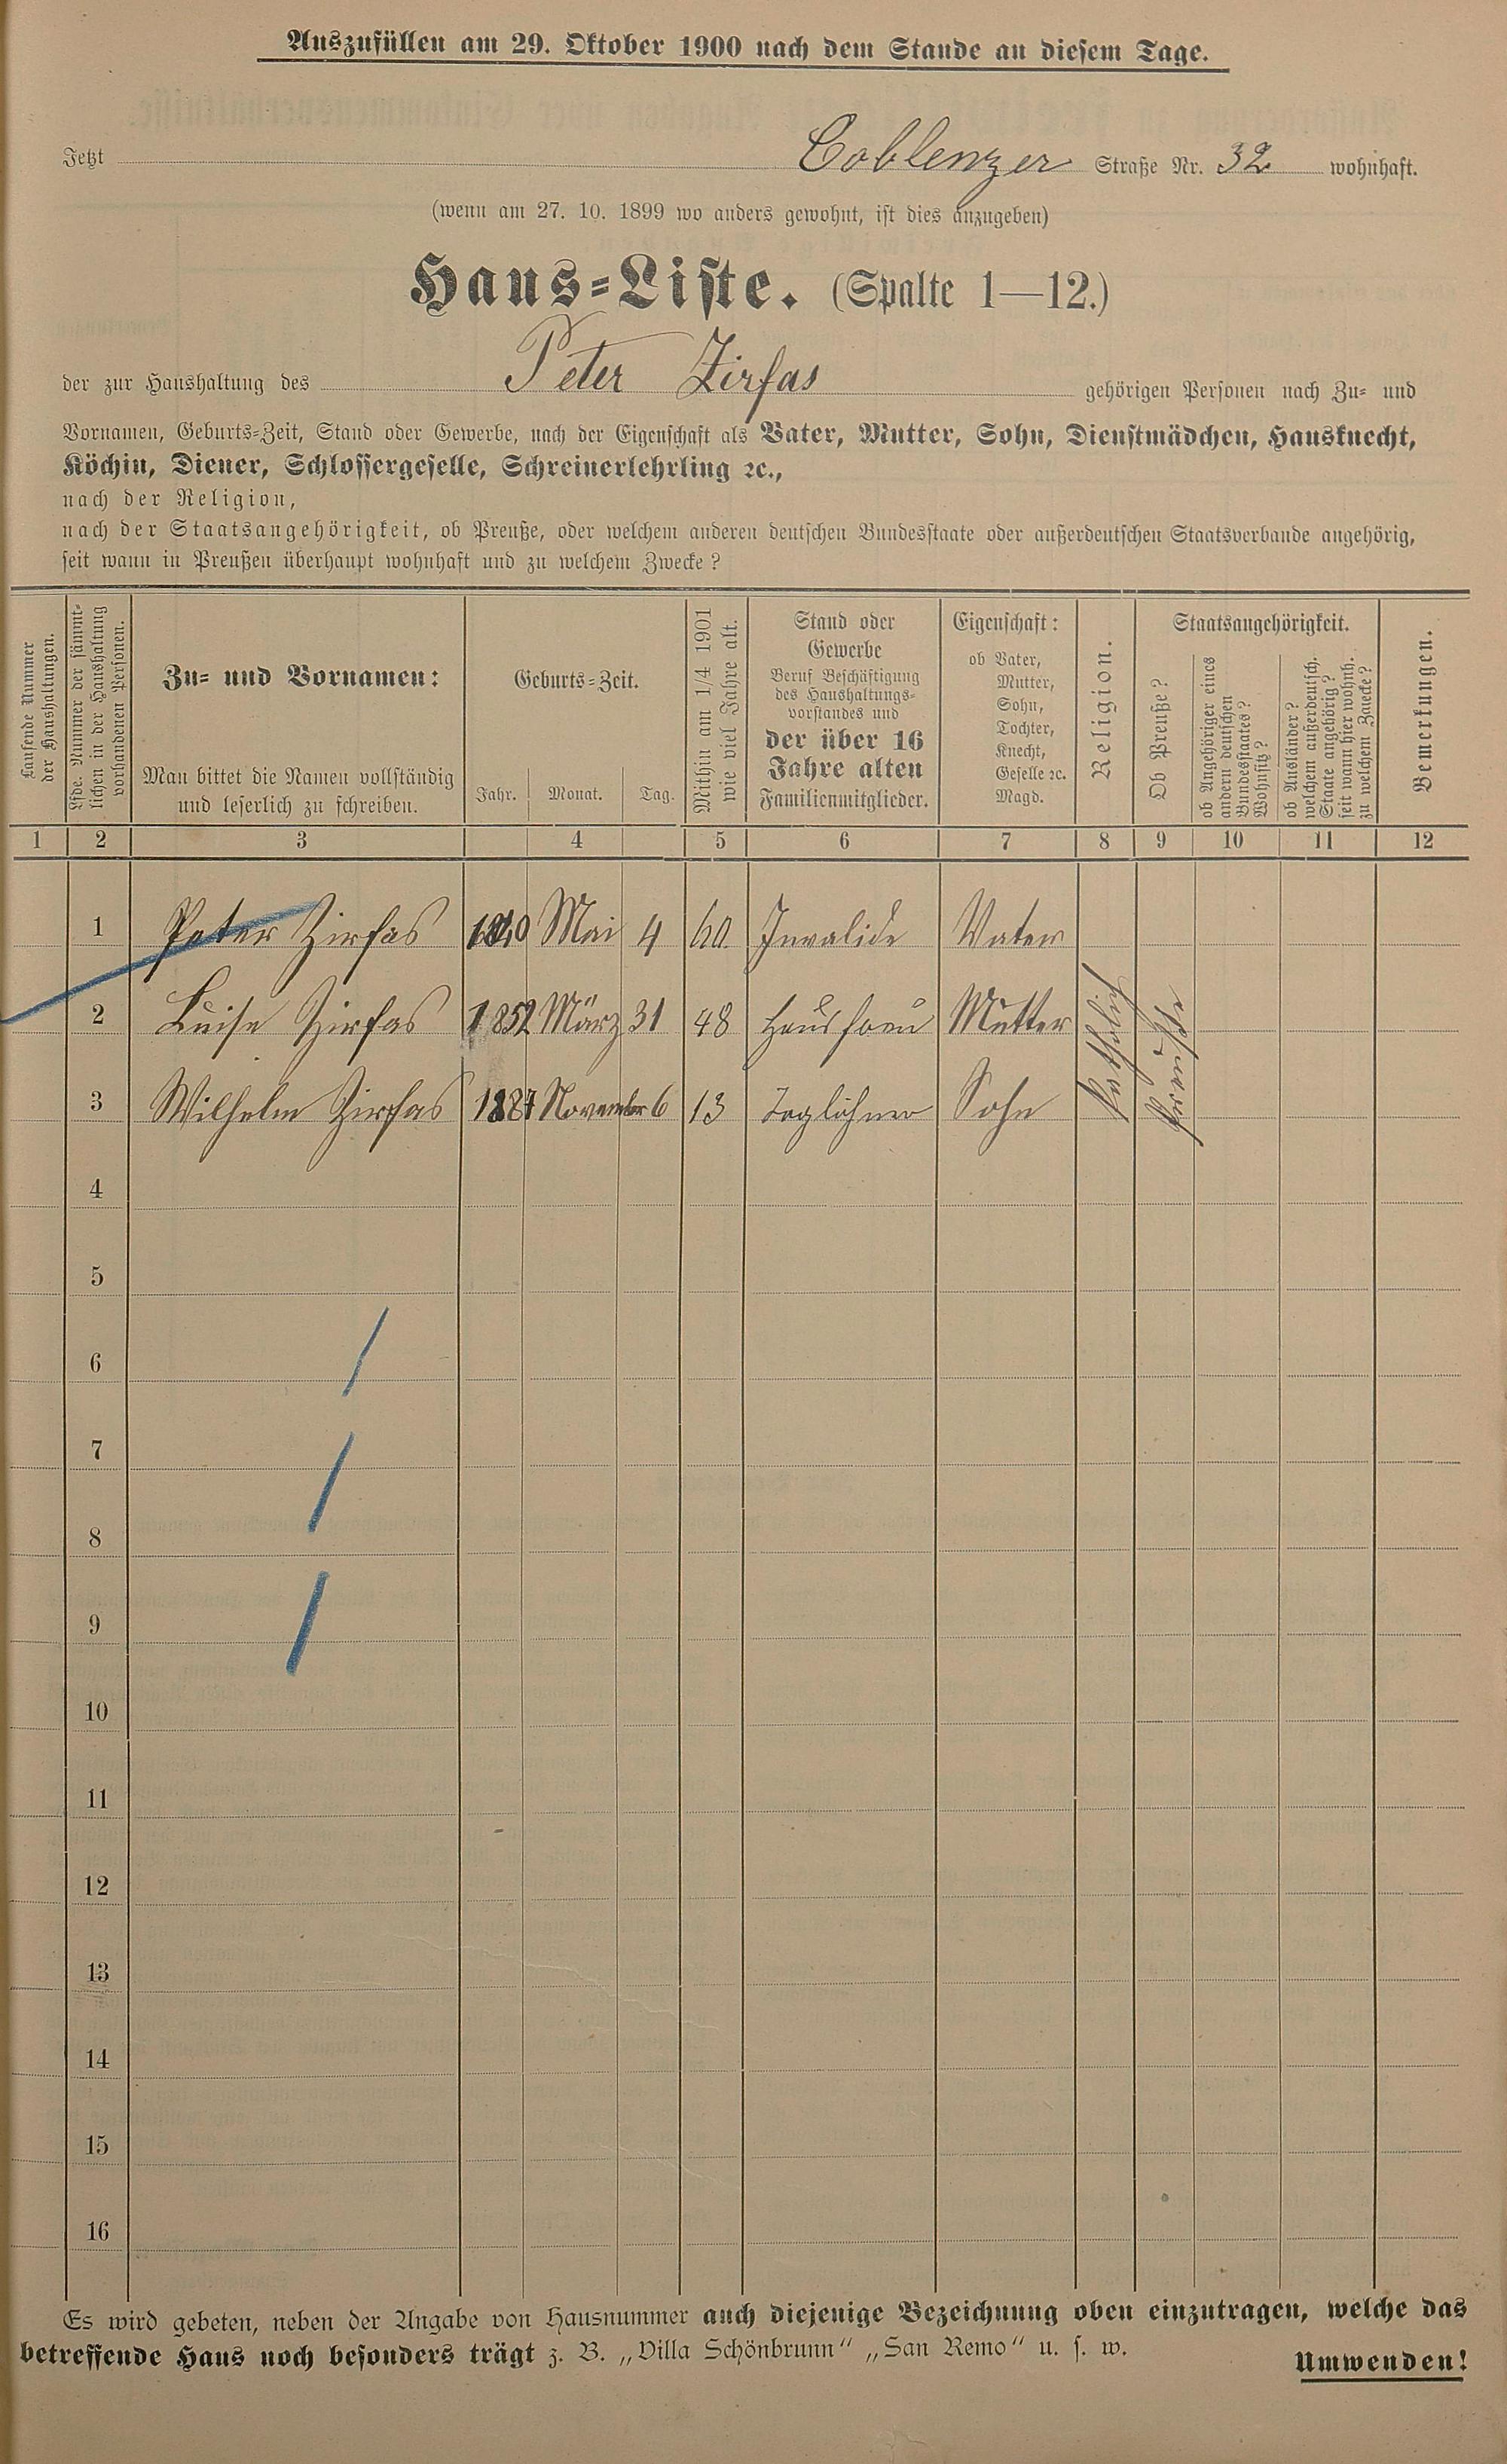 Auszufüllen am 29. Oktober 1900 nach dem Stande an diesem Tage.
Jetzt Coblenzer Straße Nr. 32 wohnhaft.
(wenn am 27. 10. 1899 wo anders gewohnt, ist dies anzugeben)
Haus=Liste. (Spalte 1—12.)
der zur Haushaltung des Peter Zirfas gehörigen Personen nach Zu= und
Vornamen, Geburts=Zeit, Stand oder Gewerbe, nach der Eigenschaft als Vater, Mutter, Sohn, Dienstmädchen, Hausknecht,
Köchin, Diener, Schlossergeselle, Schreinerlehrling ꝛc.,
nach der Religion,
nach der Staatsangehörigkeit, ob Preuße, oder welchem anderen deutschen Bundesstaate oder außerdeutschen Staatsverbande angehörig,
seit wann in Preußen überhaupt wohnhaft und zu welchem Zwecke?
Laufende Nummer
der Haushaltungen.
Lfde. Nummer der sämmt-
lichen in der Haushaltung
vorhandenen Personen.
Zu= und Vornamen:
Man bittet die Namen vollständig
und leserlich zu schreiben.
Geburts=Zeit.
Jahr. Monat. Tag.
Mithin am 1/4 1901
wie viel Jahre alt.
Stand oder
Gewerbe
Beruf Beschäftigung
des Haushaltungs-
vorstandes und
der über 16
Jahre alten
Familienmitglieder.
Eigenschaft:
ob Vater,
Mutter,
Sohn,
Tochter,
Knecht,
Geselle ꝛc.
Magd.
Religion.
Staatsangehörigkeit.
Ob Preuße?
ob Angehöriger eines
andern deutschen
Bundesstaates?
Wohnsitz?
ob Ausländer?
welchem außerdeutsch.
Staate angehörig?
seit wann hier wohnh.
zu welchem Zwecke?
Bemerkungen.
1 2 3 4 5 6 7 8 9 10 11 12
1 Peter Zirfas 1840 Mai 4 60 Invalide Vater
2 Luise Zirfas 1852 März 31 48 Hausfrau Mutter
3 Wilhelm Zirfas 1887 November 6 13 Taglöhner Sohn
Katholisch
Preuße
4
5
6
7
8
9
10
11
12
13
14
15
16
Es wird gebeten, neben der Angabe von Hausnummer auch diejenige Bezeichnung oben einzutragen, welche das
betreffende Haus noch besonders trägt z. B. „Villa Schönbrunn“ „San Remo“ u. s. w.
Umwenden!